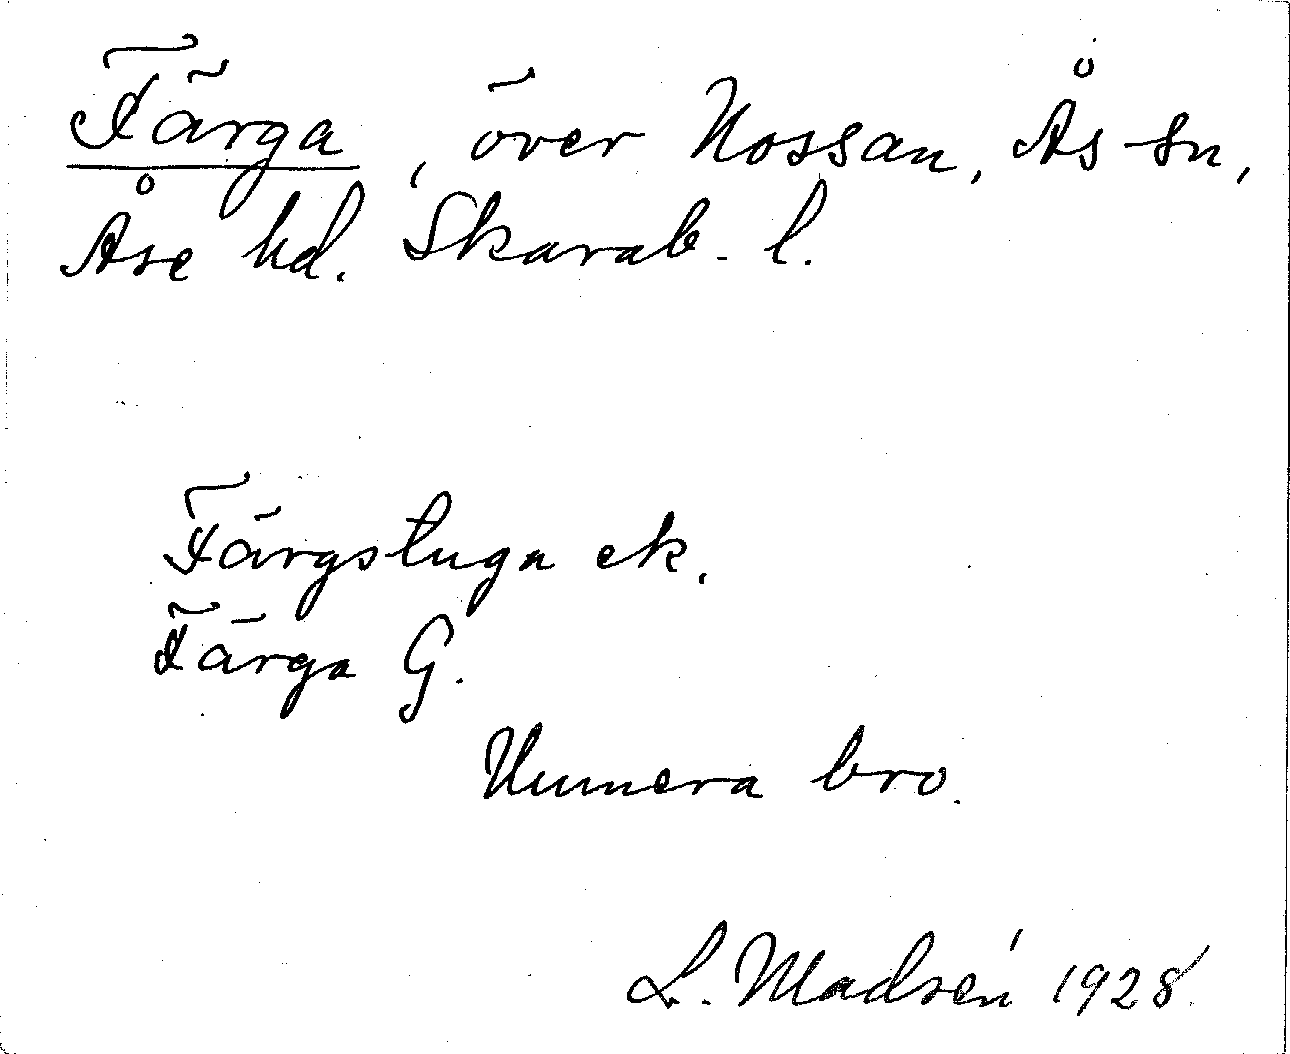 Färga, över Nossan, Ås sn,
Åse hd. Skarab. l.
Färgstuga ek.
Färga G.
Numera bro.
L. Madsén 1928.